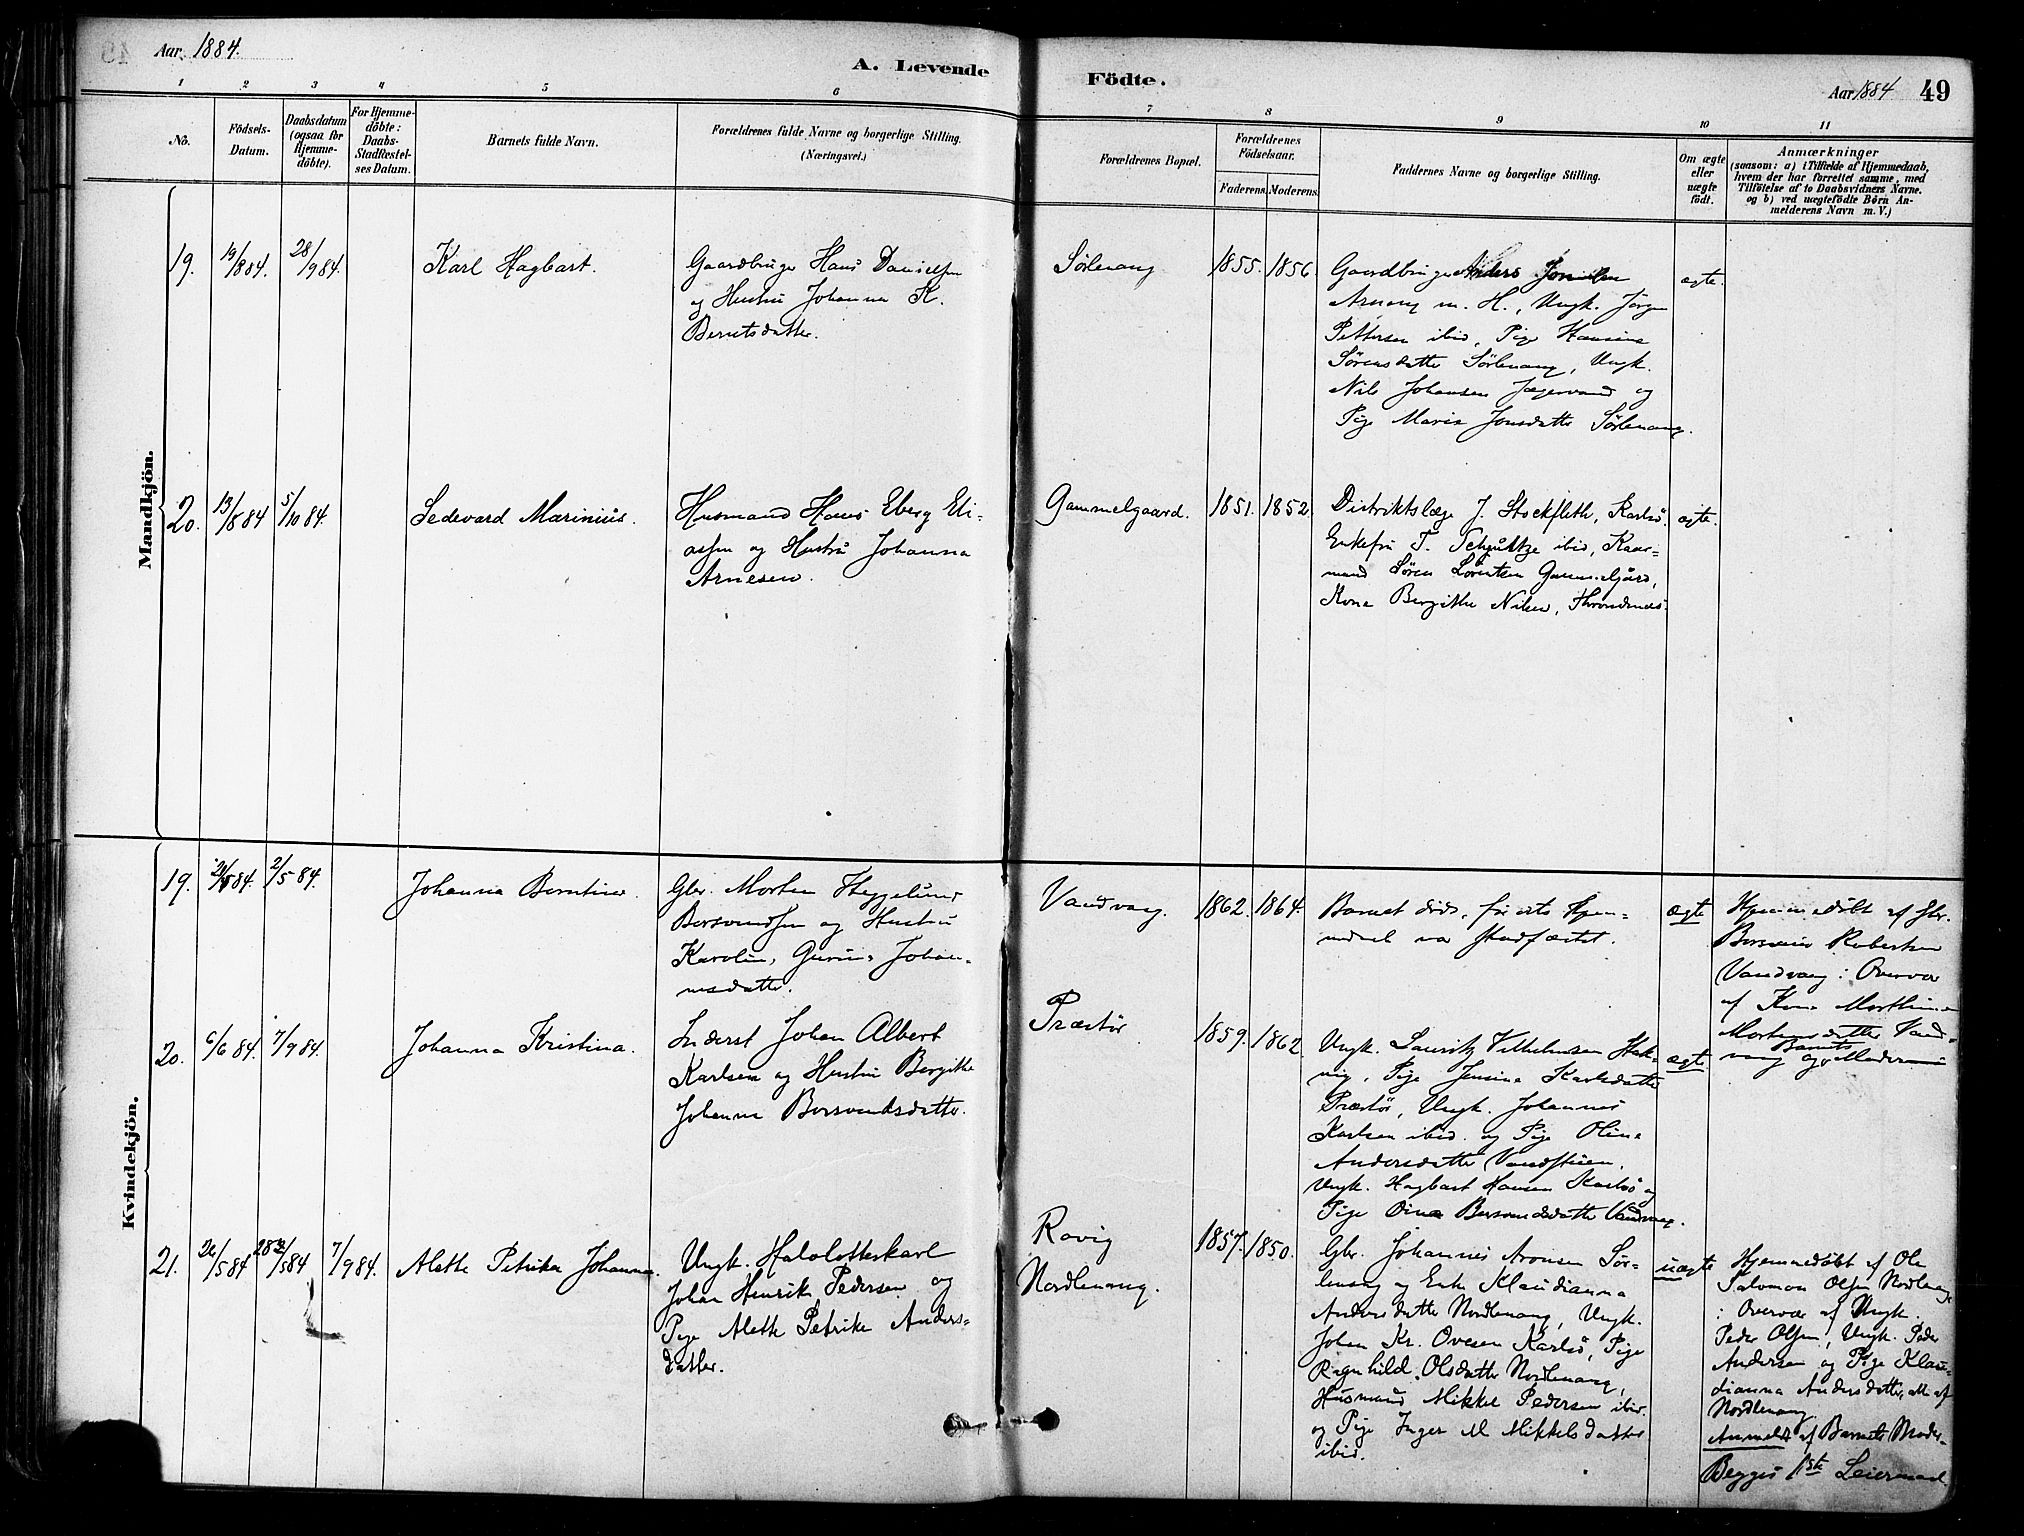 Aar 1884.
A. Levende
Födte.
Aar 1884
49
1 2 3 4 5 6 7 8 9 10 11
No.
Födsels-
Datum.
Daabsdatum
(ogsaa for
Hjemme-
döbte).
For Hjemme-
döbte:
Daabs-
Stadfæstel-
ses Datum.
Barnets fulde Navn.
Forældrenes fulde Navne og borgerlige Stilling.
(Næringsvei.)
Forældrenes Bopæl.
Forældrenes
Födselsaar.
Faderens. Moderens.
Faddernes Navne og borgerlige Stilling.
Om ægte
eller
uægte
födt.
Anmærkninger
(saasom: a) i Tilfælde af Hjemmedaab,
hvem der har forrettet samme, med
Tilföielse af to Daabsvidners Navne.
og b) ved uægtefödte Börn An-
melderens Navn m. V.)
Mandkjön.
19. 19/8 84. 28/9 84. Karl Hagbart.
Gaardbruger Hans Danielsen
og Hustru Johanna K.
Berntsdatter.
Sörlenang 1855. 1856.
Gaardbruger Anders
Arnang m. H., Ungk. Jörgen
Pettersen ibid, Pige Hansine
Sörensdatter Sörlenang, Ungk.
Nils Johansen Jægervand og
Pige Maria Jonsdatter Sörlenang.
ægte.
20. 13/8 84 5/10 84. Sedevard Marinius.
Husmand Hans Eberg Eli-
assen og Hustru Johanna
Arnesen.
Gammelgaard. 1851. 1852
Distriktslæge J. Stockfleth, Karlsö.
Enkefru T. ibid, Kaar-
mand Sören Lorentsen Gammelgård,
Kone Bergithe Nilsen, Throndenes.
ægte.
Kvindekjön.
19. 84. 2/5 84. Johanna Berntine
Gbr. Morten Heggelund
Borsvendsen og Hustru
Karoline Gurine Johan-
nesdatter.
Vandvaag. 1862. 1864.
Barnet döde, för dets Hjem-
medaab var stadfæstet.
ægte
Hjemmedöbt af Gbr.
Borsvein Robertsen
Vandvaag i Overvær
af Kone Morthine
Mortensdatter Vand-
vaag og Barnets Moder
20. 6/6 84. 7/9 84. Johanna Kristina.
Inderst Johan Albert
Karlsen og Hustru Bergithe
Johanna Borsvendsdatter.
Præstör 1859. 1862.
Ungk. Lauritz Vilhelmsen Stak-
vig, Pige Jensine Karlsdatter
Præstör, Ungk. Johannes
Karlsen ibid. og Pige Oline
Andersdatter Vandstuen.
Ungk. Hagbart Hansen Karlsö og
Pige Dina Borsvendsdatter Vandvaag.
ægte.
21. 24/5 84 28 84 7/9 84. Alette Petrika Johanna.
Ungk. Halvlotterkarl
Johan Henrik Pedersen og
Pige Alette Petrike Anders-
datter.
Ravig
Nordlenang.
1857. 1850.
Gbr. Johannes Aronsen Sör-
lenang og Enke Klaudianna
Andersdatter Nordlenang, Ungk.
Johan Kr. Ovesen Karlsö, Pige
Ragnhild Olsdatter Nordlenang,
Husmand Mikkel Pedersen ibid.
og Pige Inger M Mikkelsdatter
ibid.
uægte
Hjemmedöbt af Ole
Salomon Olsen Nordlenang
i Overvær af Ungk.
Peder Olsen, Ungk. Peder
Andersen og Pige Klau-
dianna Andersdatter, alle af
Nordlenang.
Anmeldt af Barnets Moder.
Begges 1ste Leiermaal.